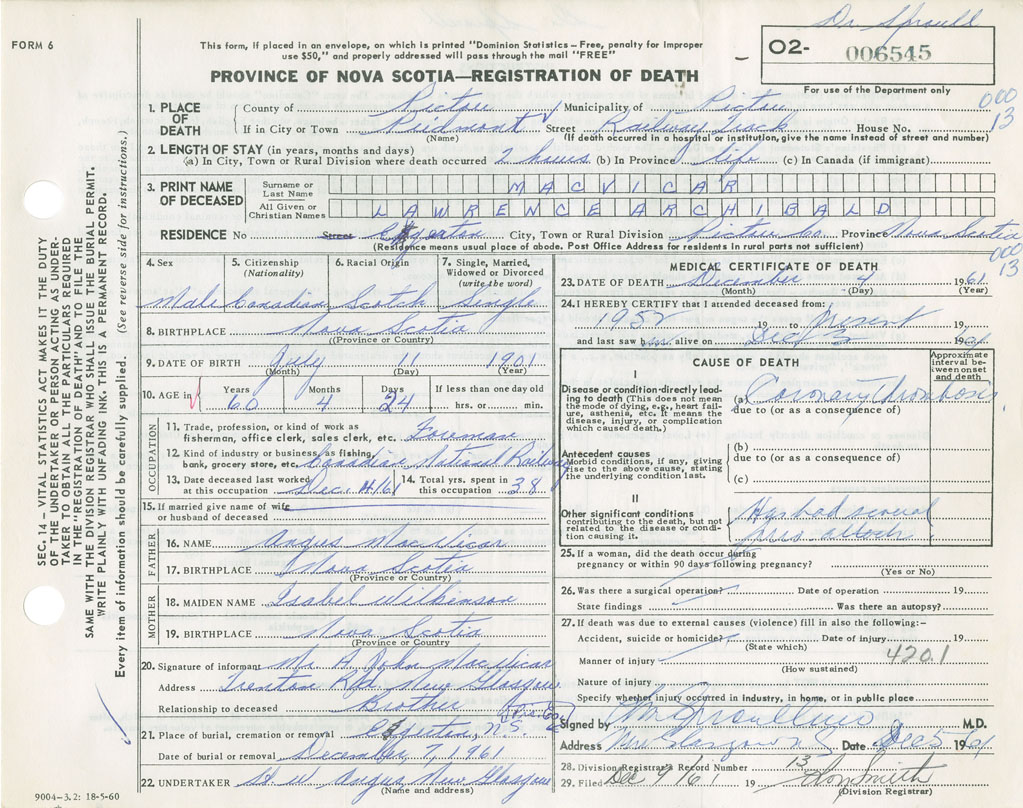 Dr. Sproull
FORM 6
This form, if placed in an envelope, on which is printed "Dominion Statistics – Free, penalty for improper
use $50," and properly addressed will pass through the mail "FREE"
02- 006545
For use of the Department only
PROVINCE OF NOVA SCOTIA—REGISTRATION OF DEATH
000
13
1. PLACE OF DEATH { County of Pictou Municipality of Pictou
If in City or Town Piedmont Street Railway Track House No.
(Name) (If death occurred in a hospital or institution, give the name instead of street and number)
2. LENGTH OF STAY (in years, months and days)
(a) In City, Town or Rural Division where death occurred 2 hours (b) In Province life (c) In Canada (if immigrant)
3. PRINT NAME OF DECEASED
Surname or Last Name MACVICAR
All Given or Christian Names LAWRENCE ARCHIBALD
RESIDENCE No Street Egerton City, Town or Rural Division Pictou Co. Province Nova Scotia
(Residence means usual place of abode. Post Office Address for residents in rural parts not sufficient)
000
13
SEC. 14 – VITAL STATISTICS ACT MAKES IT THE DUTY
OF THE UNDERTAKER OR PERSON ACTING AS UNDER-
TAKER TO OBTAIN ALL THE PARTICULARS REQUIRED
IN THE "REGISTRATION OF DEATH" AND TO FILE THE
SAME WITH THE DIVISION REGISTRAR WHO SHALL ISSUE THE BURIAL PERMIT.
WRITE PLAINLY WITH UNFADING INK. THIS IS A PERMANENT RECORD.
Every item of information should be carefully supplied. (See reverse side for instructions.)
4. Sex Male
5. Citizenship (Nationality) Canadian
6. Racial Origin Scotch
7. Single, Married, Widowed or Divorced (write the word) Single
8. BIRTHPLACE Nova Scotia
(Province or Country)
9. DATE OF BIRTH July 11 1901
(Month) (Day) (Year)
10. AGE in Years 60 Months 4 Days 24 If less than one day old hrs. or min.
OCCUPATION
11. Trade, profession, or kind of work as
fisherman, office clerk, sales clerk, etc. Foreman
12. Kind of industry or business, as fishing,
bank, grocery store, etc. Canadian National Railway
13. Date deceased last worked at this occupation Dec 4/61
14. Total yrs. spent in this occupation 38
15. If married give name of wife
or husband of deceased
FATHER
16. NAME Angus MacVicar
17. BIRTHPLACE Nova Scotia
(Province or Country)
MOTHER
18. MAIDEN NAME Isabel Wilkinson
19. BIRTHPLACE Nova Scotia
(Province or Country)
20. Signature of informant Mr. A. John MacVicar
Address Trenton Rd. New Glasgow
Relationship to deceased Brother
21. Place of burial, cremation or removal Egerton, N.S.
Date of burial or removal December 7, 1961
22. UNDERTAKER H. W. Angus New Glasgow
(Name and address)
9004–3.2: 18-5-60
MEDICAL CERTIFICATE OF DEATH
23. DATE OF DEATH December 4 1961
(Month) (Day) (Year)
24. I HEREBY CERTIFY that I attended deceased from:
1952 19 to Present 19
and last saw him alive on Dec 3 1961
CAUSE OF DEATH
Approximate interval between onset and death
I
Disease or condition directly lead-
ing to death (This does not mean
the mode of dying, e.g., heart fail-
ure, asthenia, etc. It means the
disease, injury, or complication
which caused death.)
(a) Coronary Thrombosis
due to (or as a consequence of)
Antecedent causes
Morbid conditions, if any, giving
rise to the above cause, stating
the underlying condition last.
(b)
due to (or as a consequence of)
(c)
II
Other significant conditions
contributing to the death, but not
related to the disease or condi-
tion causing it.
He had several
prev. attacks
25. If a woman, did the death occur during
pregnancy or within 90 days following pregnancy?
(Yes or No)
26. Was there a surgical operation? Date of operation 19
State findings Was there an autopsy?
27. If death was due to external causes (violence) fill in also the following:–
Accident, suicide or homicide? Date of injury 19
(State which)
420.1
Manner of injury
(How sustained)
Nature of injury
Specify whether injury occurred in industry, in home, or in public place
Signed by M.D.
Address New Glasgow Date Dec 5 1961
28. Division Registrar's Record Number 13
29. Filed Dec 9/61 19 Roy Smith
(Division Registrar)